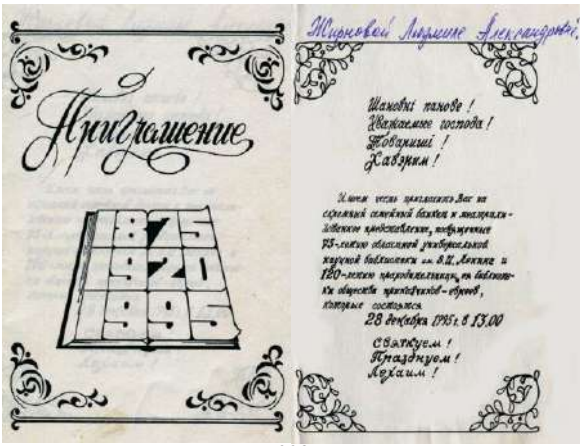 Приглашение
875
920
995
Жирновой Людмиле Александровне.
Шановні панове!
Уважаемые господа!
Товариші!
Хавэрим!
Имеем честь пригласить Вас на
скромный семейный банкет и театрали-
зованное представление, посвященные
75-летию областной универсальной
научной библиотеки им. В.И. Ленина и
120-летию прародительницы, ея библиоте-
ки общества приказчиков-евреев,
которые состоятся
28 декабря 1995 г. в 13.00
Святкуем!
Празднуем!
Лехаим!